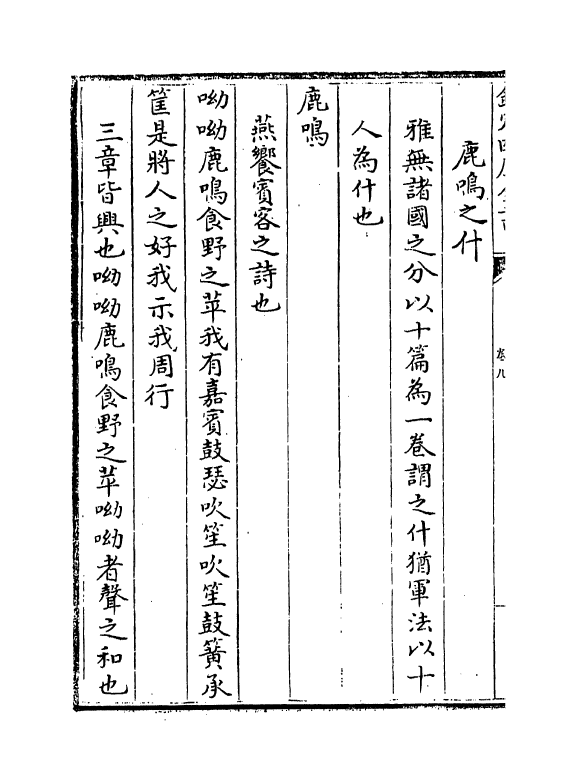 欽定四庫全書
卷八
鹿鳴之什
雅無諸國之分以十篇為一卷謂之什猶軍法以十
人為什也
鹿鳴
燕饗賓客之詩也
呦呦鹿鳴食野之苹我有嘉賓鼓瑟吹笙吹笙鼓簧承
筐是將人之好我示我周行
三章皆興也呦呦鹿鳴食野之苹呦呦者聲之和也